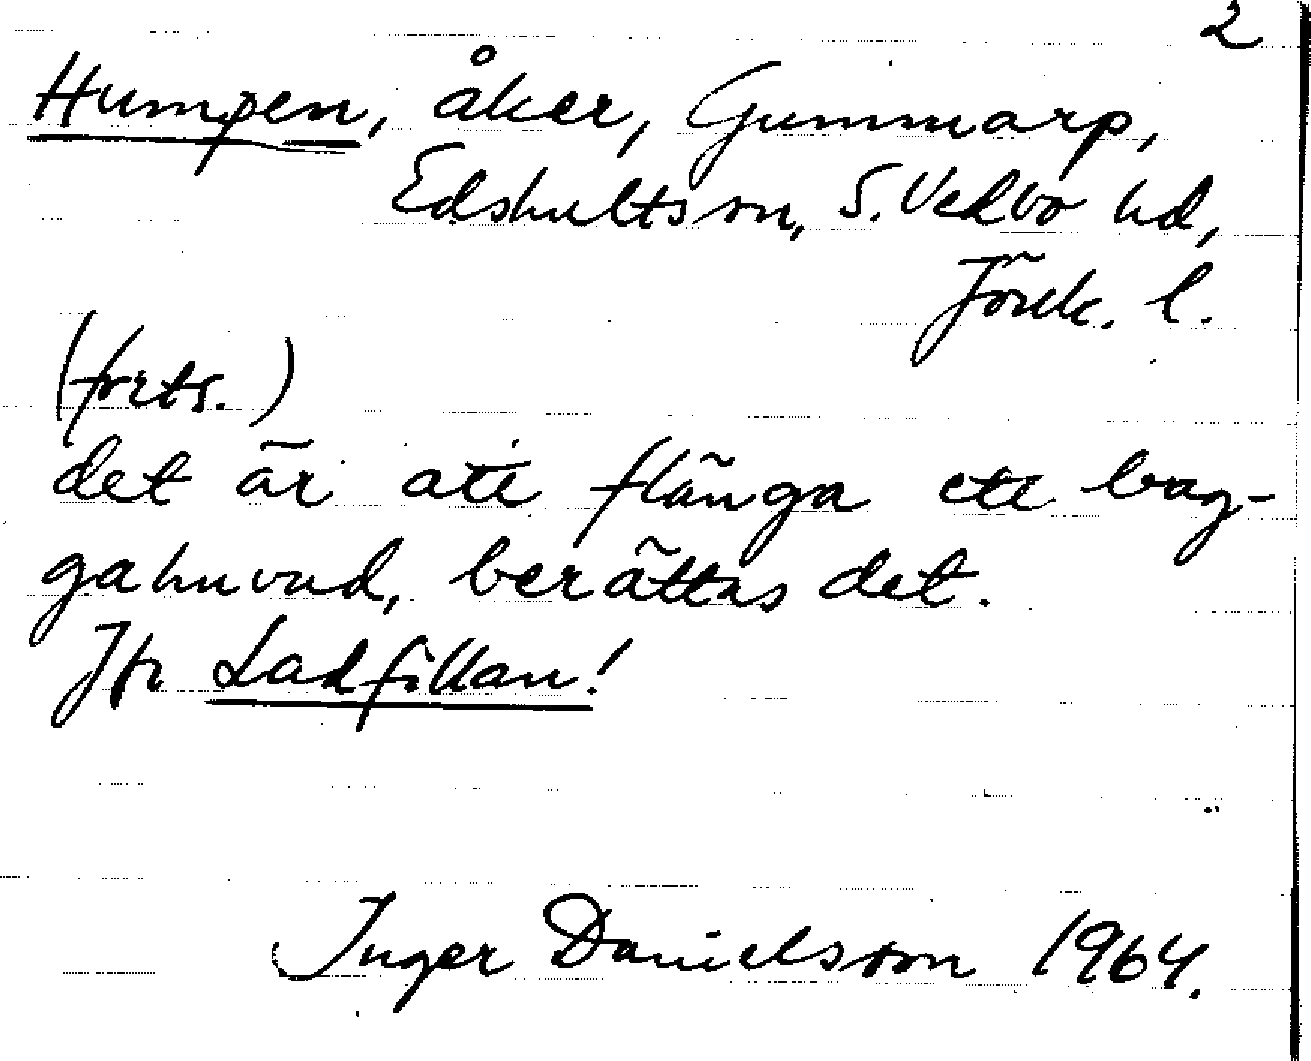 2
Humpen, åker, Gummarp,
Edshults sn, S. Vedbo hd,
Jönk. l.
(forts.)
det är att flänga ett bag-
gahuvud, berättas det.
Jfr Ladfillan!
Inger Danielsson 1964.